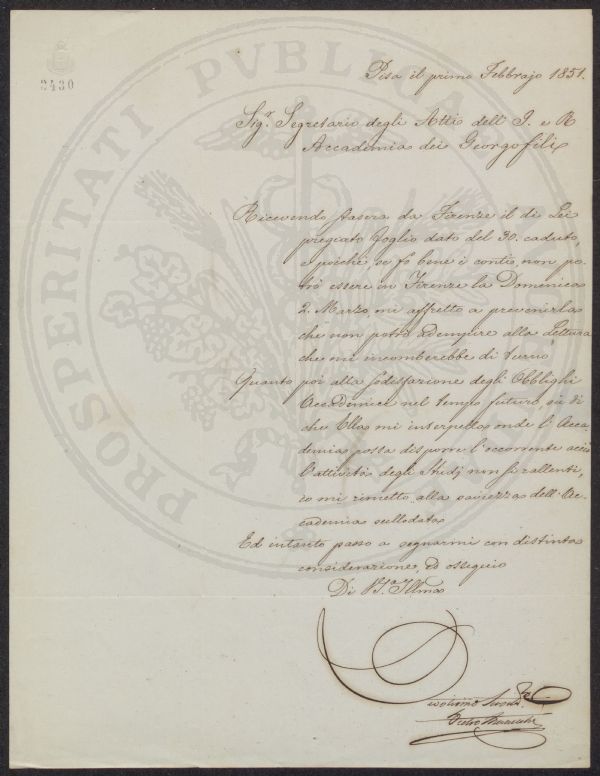 2430
PROSPERITATI PVBLICAE
Pisa il primo Febbrajo 1851.
Sigr. Segretario degli Atti dell' I. e R
Accademia dei Georgofili
Ricevendo stasera da Firenze il di Lei
pregiato foglio dato del 30. caduto,
e poichè, se fo bene i conti, non po-
trò essere in Firenze la Domenica
2. Marzo, mi affretto a prevenirla
che non potrò adempire alla Lettura
che mi incomberebbe di turno.
Quanto poi alla sodisfazione degli Obblighi
Accademici nel tempo futuro, su di
che Ella mi interpella onde l' Acca-
demia possa disporre l' occorrente acciò
l'attività degli Studj non si rallenti,
io mi rimetto alla saviezza dell' Ac-
cademia sullodata
Ed intanto passo a segnarmi con distinta
considerazione, ed ossequio
Di V.a Illma
Pietro